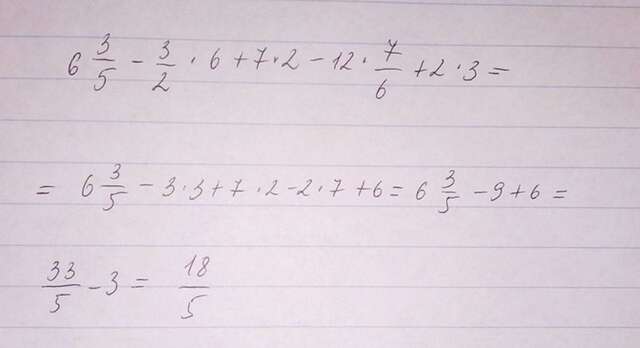 6 3/5 - 3/2 · 6 + 7 · 2 - 12 · 7/6 + 2 · 3 =
= 6 3/5 - 3 · 3 + 7 · 2 - 2 · 7 + 6 = 6 3/5 - 9 + 6 =
33/5 - 3 = 18/5